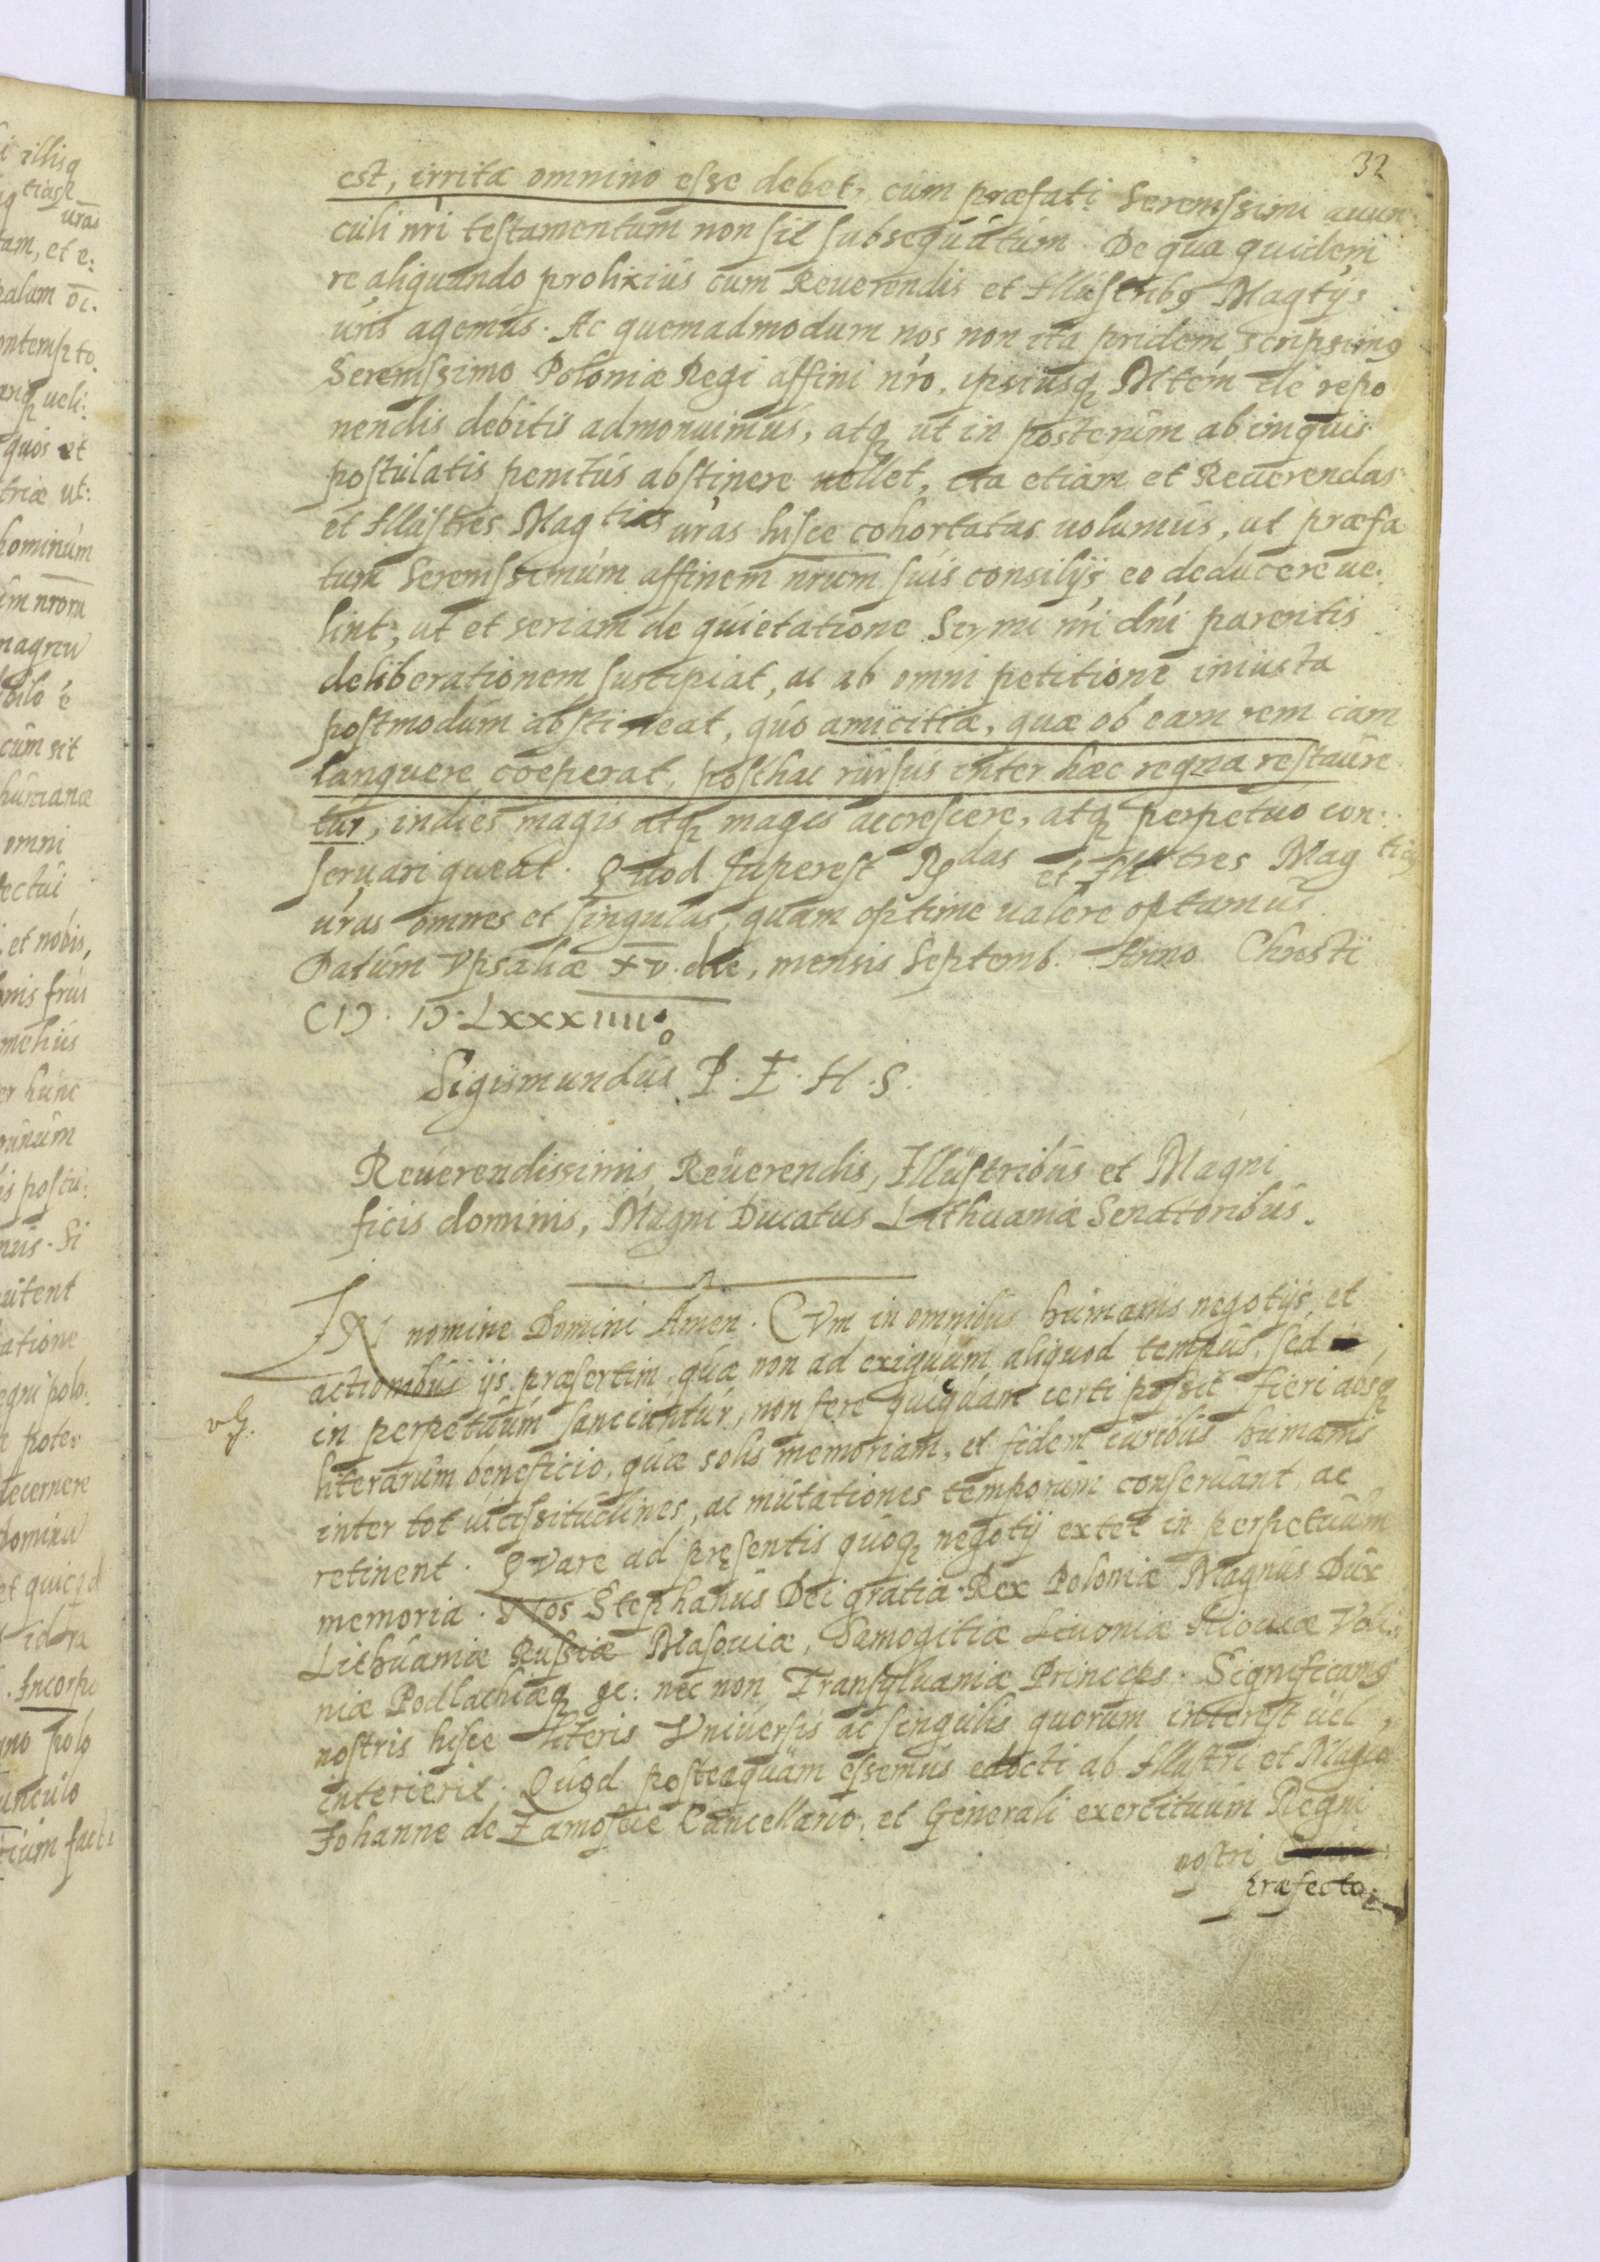 32
est, irrita omnino esse debet, cum præfati Serenissimi auun
culi nri testamentum non sit subsequutum. De qua quidem
re aliquando prolixius cum Reuerendis et Illustribq Magtijs
uris agemus. Ac quemadmodum nos non ita pridem scripsimq
Serenissimo Poloniæ Regi affini nro, ipsiusq Mtem de repo
nendis debitis admonuimus, atq ut in posterum ab iniquis
postulatis penitus abstinere uellet, ita etiam et Reuerendas
et Illustres Magtias uras hisce cohortatas uolumus, ut præfa
tum Serenissimum affinem nrum suis consilijs eo deducere ue.
lint; ut et seriam de quietatione Sermi nri dni parentis
deliberationem suscipiat, ac ab omni petitione iniusta
postmodum abstineat, quo amicitiæ, quæ ob eam rem iam
languere coeperat, posthac rursus inter hæc regna restaure
tur, indies magis atq magis accrescere, atq perpetuo con:
seruari queat. Quod superest Rdas et Illustres Magtias
uras omnes et singulas, quam optime ualere optamus.
Datum Vpsaliæ xv. die, mensis Septemb. Anno Christi
CIↃ. IↃ. Lxxxiiiio
Sigismundus P. E. H. S.
Reuerendissimis, Reuerendis, Illustribus et Magni
ficis dominis, Magni Ducatus Lithuaniæ Senatoribus.
IN nomine Domini Amen. CVm in omnibus humanis negotijs, et
actionibus ijs præsertim, quæ non ad exiguum aliquod tempus, sed
in perpetuum sanciuntur, non fere quicquam certi possit fieri absq
literarum beneficio, quæ solis memoriam, et fidem curibus humanis
inter tot uicissitudines, ac mutationes temporum conseruant, ac
retinent. QVare ad pręsentis quoq negotij extet in perpetuum
memoria. Nos Stephanus Dei gratia Rex Poloniæ Magnus Dux
Lithuaniæ Russiæ Masouiæ, Samogitiæ Liuoniæ Kiouiæ Voli:
niæ Podlachiæq &c: nec non Transyluaniæ Princeps. Significamq
nostris hisce literis Vniuersis ac singulis quorum interest uel
interierit. Quod posteaquam essemus edocti ab Illustri et Magco
Johanne de Zamoscie Cancellario, et Generali exercituum Regni
nostri
præfecto